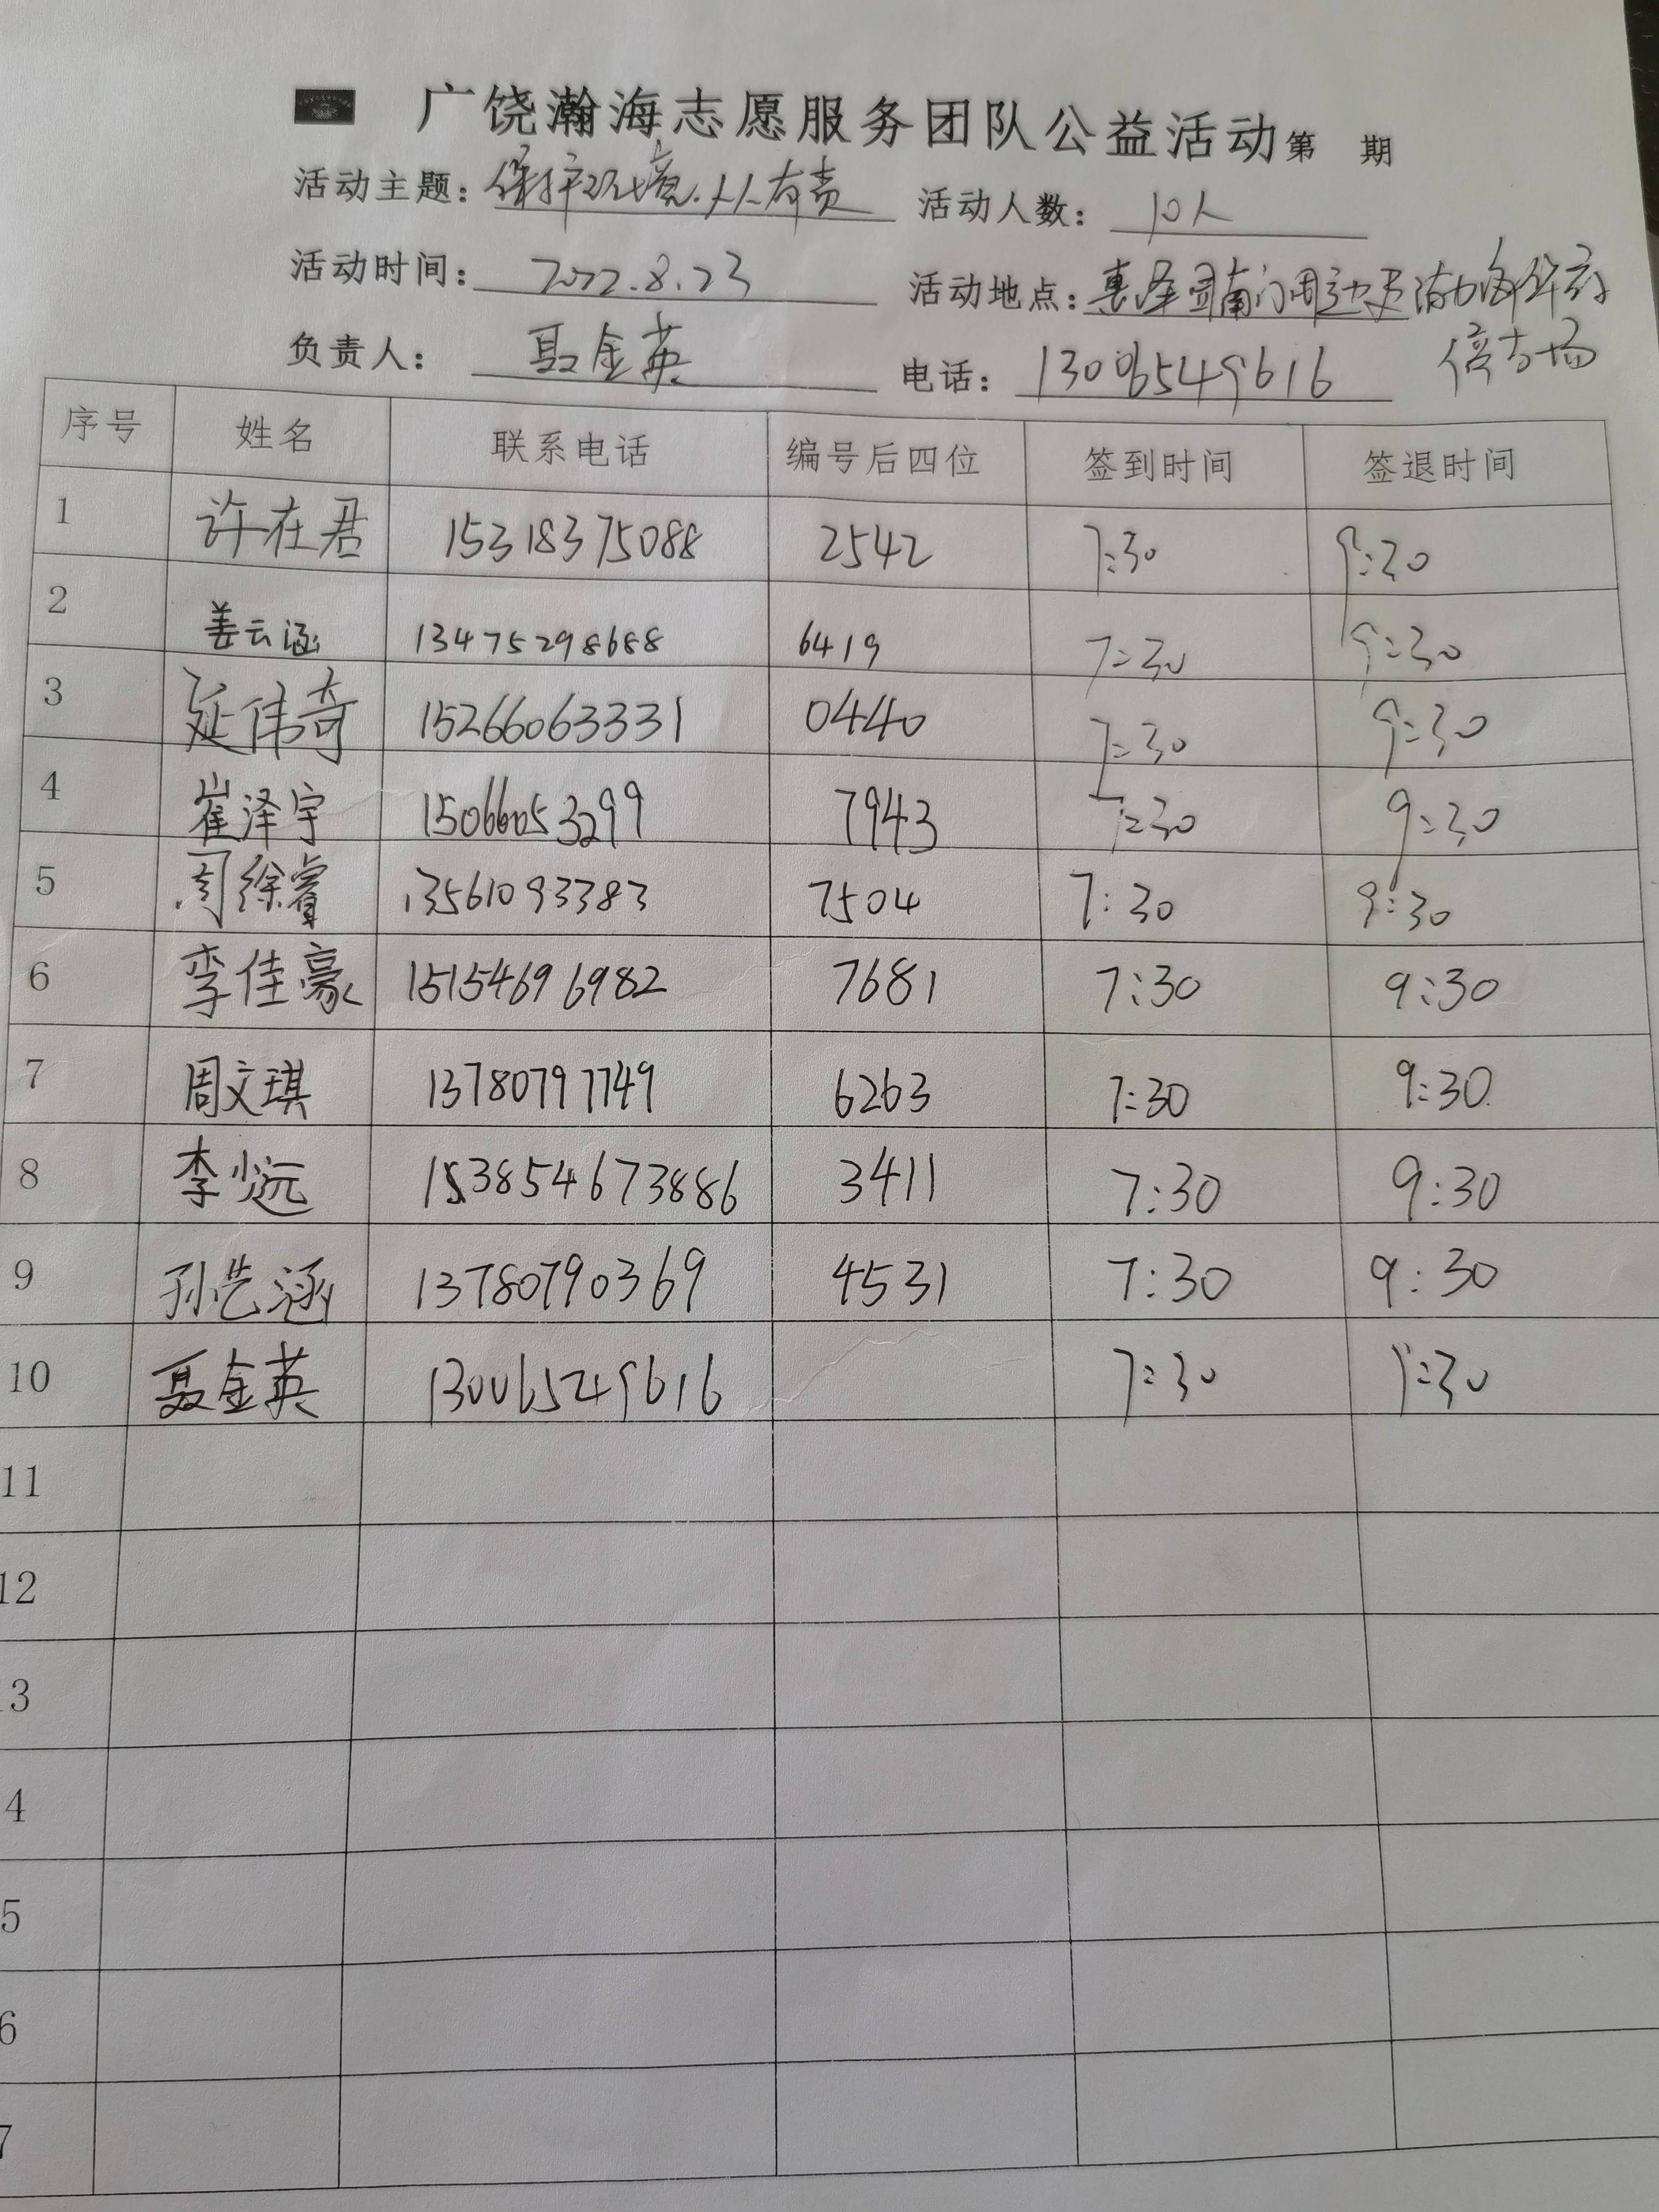 广饶瀚海志愿服务团队公益活动第 期
活动主题：保护环境.人人有责 活动人数：10人
活动时间：2022.8.23 活动地点：惠泽园南门周边及渤海华府
停车场
负责人：聂金英 电话：13006549616
序号 姓名 联系电话 编号后四位 签到时间 签退时间
1 许在君 15318375088 2542 7:30 9:30
2 姜云涵 13475298688 6419 7:30 9:30
3 延伟奇 15266063331 0440 7:30 9:30
4 崔泽宇 15066053299 7943 7:30 9:30
5 周徐睿 13561093383 7504 7:30 9:30
6 李佳豪 15154696982 7681 7:30 9:30
7 周文琪 13780797749 6263 7:30 9:30
8 李少远 153854673886 3411 7:30 9:30
9 孙艺涵 13780790369 4531 7:30 9:30
10 聂金英 13006549616 7:30 9:30
11
12
3
4
5
6
7